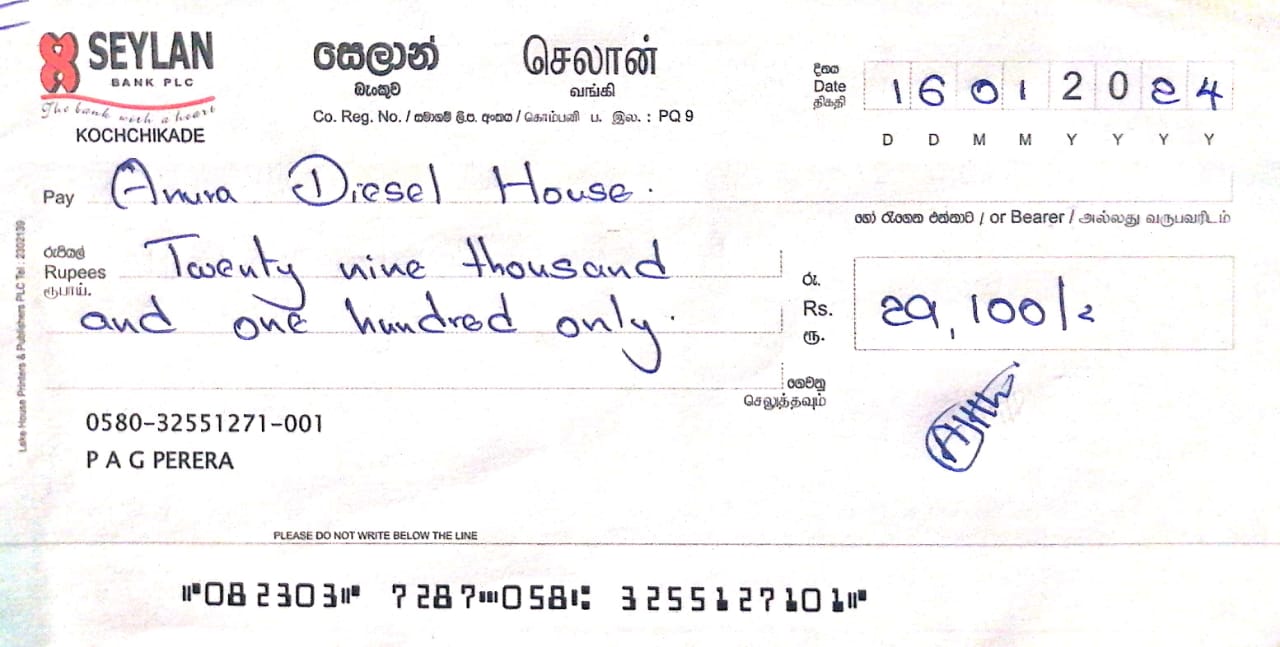 SEYLAN
BANK PLC
The bank with a heart
KOCHCHIKADE
සෙලාන් செலான்
බැංකුව வங்கி
Co. Reg. No. / සමාගම් ලි.ප. අංකය / கொம்பனி ப. இல. : PQ 9
දිනය
Date
திகதி
1 6 0 1 2 0 2 4
D D M M Y Y Y Y
Pay Anura Diesel House.
හෝ රැගෙන එන්නාට / or Bearer / அல்லது வருபவரிடம்
රුපියල්
Rupees Twenty nine thousand
ரூபாய்.
and one hundred only.
රු.
Rs. 29,100/=
ரூ.
ගෙවනු
செலுத்தவும்
Ajith
0580-32551271-001
P A G PERERA
Lake House Printers & Publishers PLC Tel : 2302139
PLEASE DO NOT WRITE BELOW THE LINE
⑈082303⑈ 7287⑉058⑆ 3255127101⑈